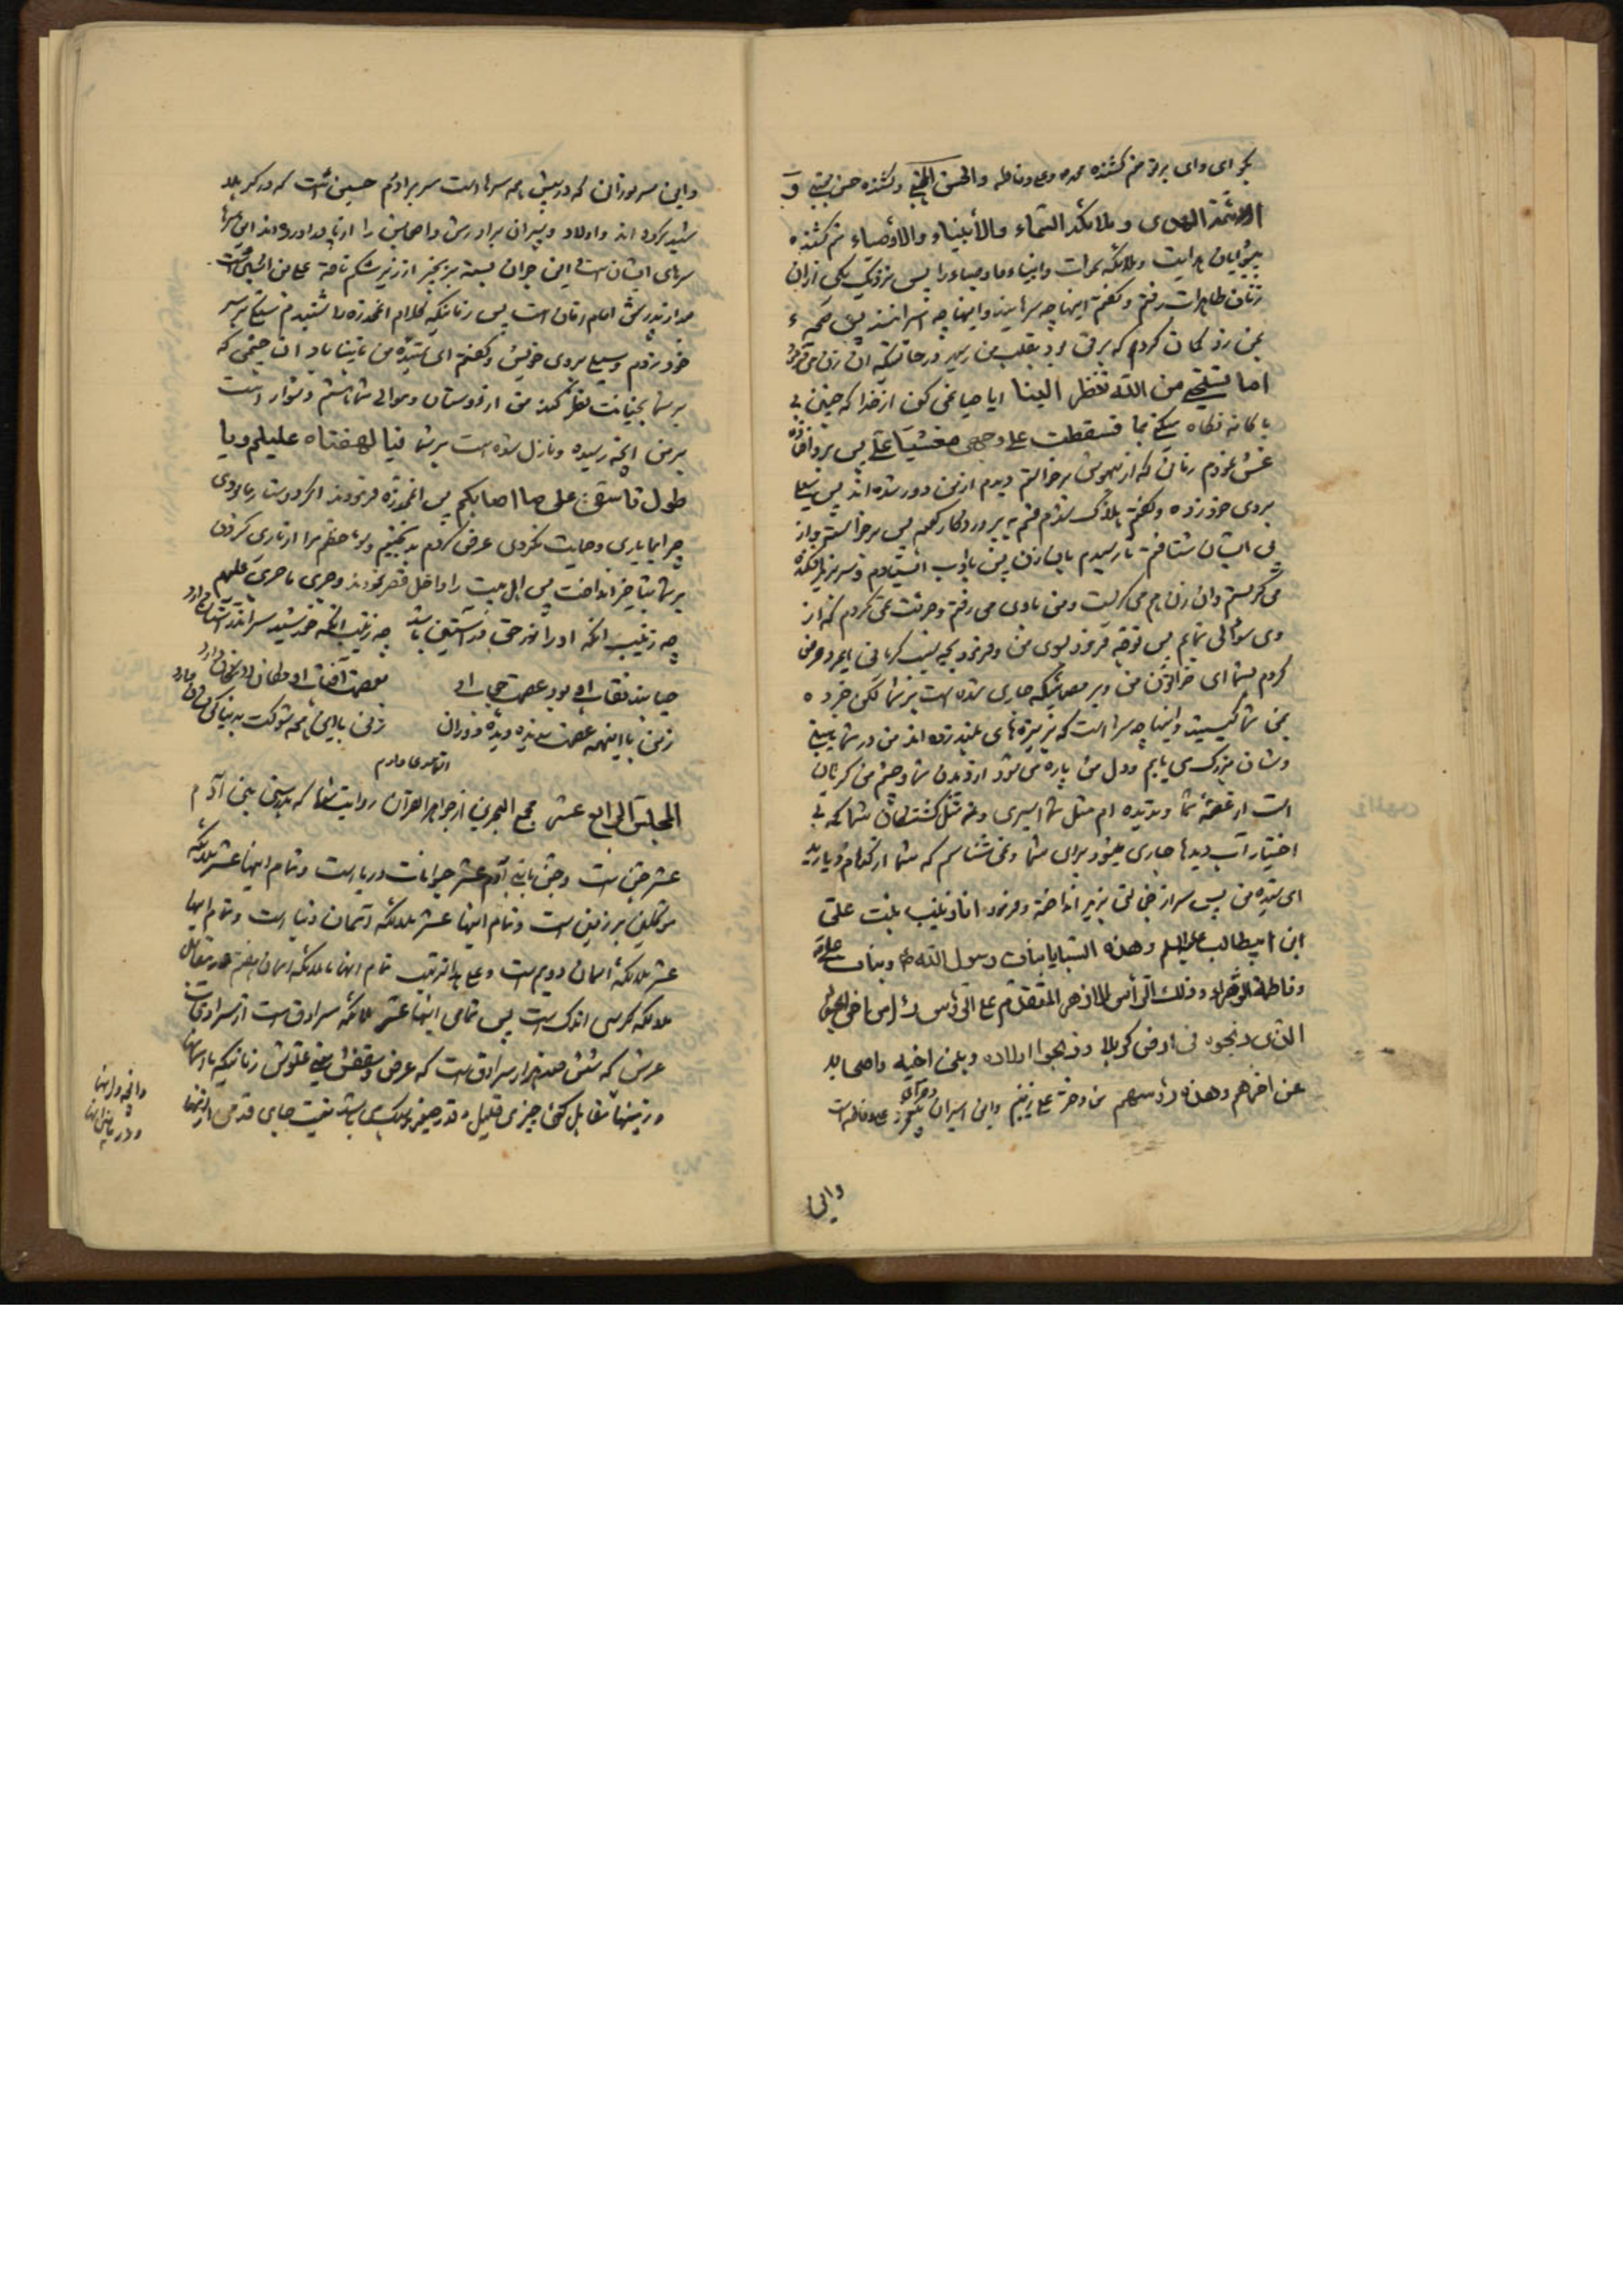 ای وای بر تو منم کشنده محمد و علی و فاطمه والحسن المجتبی و کشنده حسن مجتبی و
ائمة الهدی و ملائکة السماء والأنبیاء والاوصیاء منم کشنده
پیشوایان هدایت و ملائکه سموات و انبیاء و اوصیاء را پس نزدیک یکی از ان
زنان طاهرات رفتم و گفتم اینها چه سرهایند و اینها چه اسرایند پس صیحه
بمن زد گمان کردم که برقی بود بقلب من رسید در حالتیکه ان زن میگفت
اما تستحی من الله تنظر الینا ایا حیا نمی کنی از خدا که چنین
نگاه میکنی بما فسقطت علی وجهی مغشیا علی پس بر رو افتاده
غش نمودم زمانی که از بیهوشی برخاستم دیدم از من دور شده اند پس سیلی
بروی خود زده و گفتم هلاک شدم قسم به پروردگار کعبه پس برخاستم و از
پی ایشان شتافتم تا رسیدم بان زن پس باادب ایستادم و سر بزیر افکنده
می گریستم و ان زن هم می گریست و من با وی می رفتم و جرئت نمی کردم که از
وی سوالی نمایم پس توجه فرمود بسوی من و فرمود بچه سبب گریانی ایمرد عرض
کردم بشما ای خواتون من و بر مصائبیکه جاری شده است بر شما لکن خبر ده
بمن شما کیستید و اینها چه سرها است که بر نیزه های بلند زده اند من در شما
و شان بزرگ می یابم و دل من پاره می شود از دیدن شما و چشم من گریان
است از غصه شما و ندیده ام مثل شما اسیری و نه مثل کشتگان شما که بی
اختیار آب دیدها جاری میشود برای شما و نمی شناسم که شما از کدام دیارید
ای سیده من پس سر از خجالتی بزیر انداخته و فرمود انا زینب بنت علی
ابن ابیطالب علیه السلم و هذه السبایا بنات رسول الله ص و بنات علی
و فاطمة الزهراء و ذلک الرأس الازهر المتقدم علی الرؤس رأس اخی الحسین
الذی ذبحوه فی ارض کربلا و ذبحوا اولاده و بنی اخیه و اصحابه
عن اخرهم و هذه رؤسهم من دختر علی زینبم و این اسیران دختران پیغمبر و علی و فاطمه است
واین
واین سر نورانی که در پیش همه سرها است سر برادرم حسین است که در کربلا
شهید کرده اند و اولاد و پسران برادرش و اصحابش را از پا دراورده اند این سرها
سرهای ایشان است این جوان بسته بزنجیر از زیر شکم ناقه علی بن الحسین است
بعد از پدرش امام زمان است پس زمانیکه کلام انمخدره را شنیدم سنگ بر سر
خود زدم و سیلی بروی خویش و گفتم ای سیده من نابینا باد ان چشمی که
بر شما بخیانت نظر کند من از دوستان و موالی شما هستم دشوار است
بر من انچه رسیده و نازل شده است بر شما فیا لهفتاه علیکم و یا
طول تاسفی علی ما اصابکم پس انمخدره فرمودند اگر دوست ما بودی
چرا ما یاری و حمایت نکردی عرض کردم بدبختیم و سوء حظم مرا از یاری کردن
بر شما بتاخیر انداخت پس اهل بیت را داخل قصر نمودند و جری ما جری علیهم
چه زینب انکه او را نور حق در آستین باشد چه زینب انکه خورشید سر اندر آستان دارد
حیا بند نقاب او بود عصمت حجاب او بعصمت آفتاب او مکان در لامکان دارد
زمین با اینهمه عصمت ندیده دیده دوران زنی با این همه شوکت بدنیا کی نشان دارد
المجلس الرابع عشر مجمع البحرین از جواهر القرآن روایت شده که بدرستی بنی آدم
عشر جن است و جن با بنی آدم عشر حیوانات دریا است و تمام اینها عشر ملائکه
موکلین بر زمین است و تمام اینها عشر ملائکه آسمان دنیا است و تمام اینها
عشر ملائکه اسمان دویم است و علی هذا الترتیب تمام اینها تا ملائکه اسمان هفتم در مقابل
ملائکه کرسی اندک است پس تمامی اینها عشر ملائکه سرادق است از سرادقات
عرش که ششصد هزار سرادق است که عرض و سقفش یعنی علوش زمانیکه با اسمانها
و زمینها مقابل کنی چیزی قلیل و قدر صغیر میباشد نیست جای قدمی از اینها
وانچه در اینها
و در مابین اینها